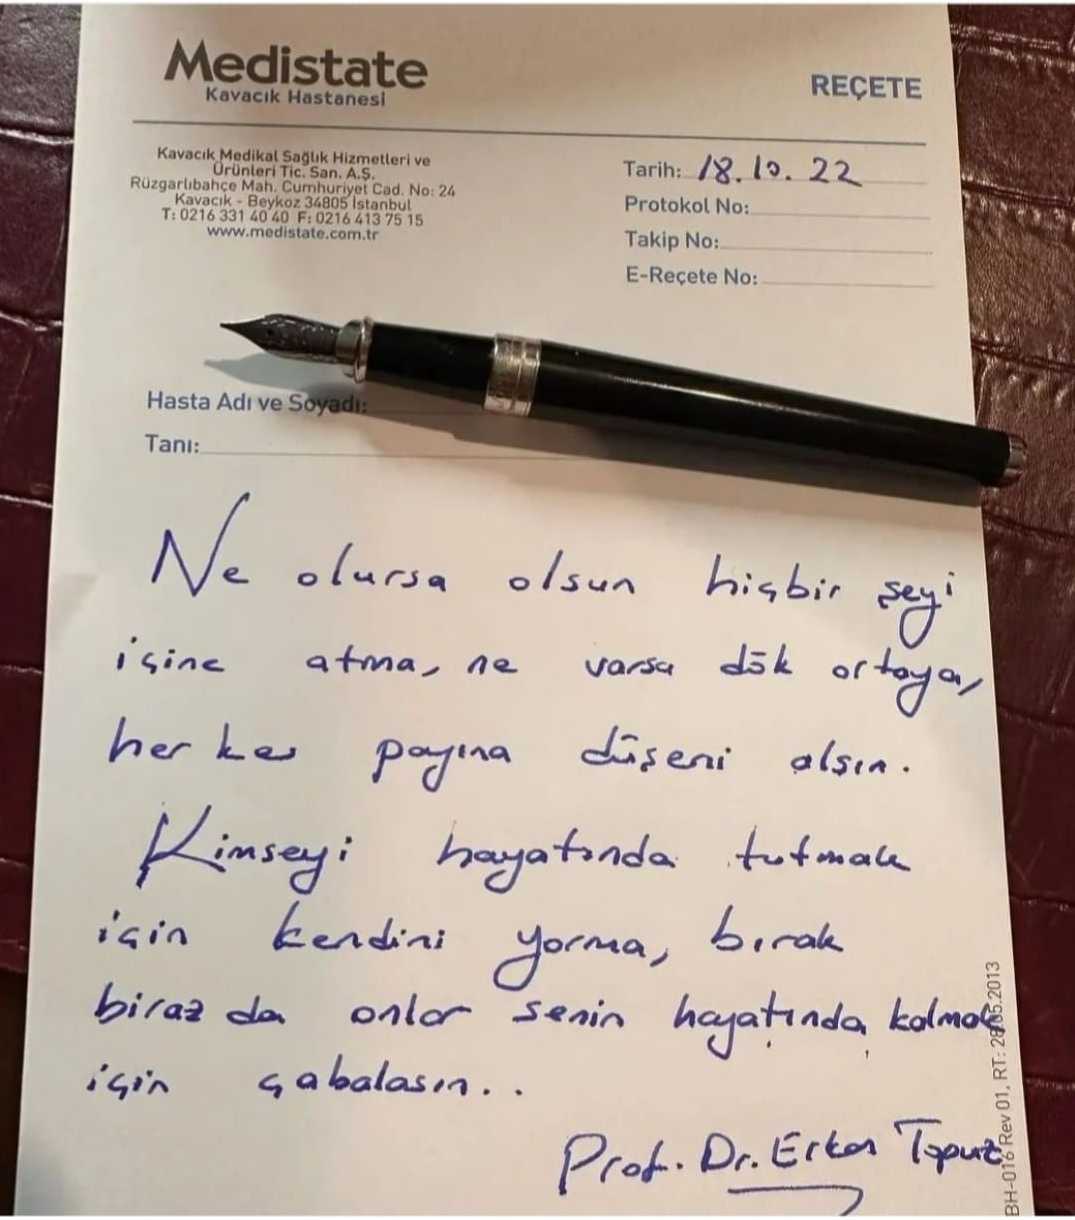 Medistate
Kavacık Hastanesi
REÇETE
Kavacık Medikal Sağlık Hizmetleri ve
Ürünleri Tic. San. A.Ş.
Rüzgarlıbahçe Mah. Cumhuriyet Cad. No: 24
Kavacık - Beykoz 34805 İstanbul
T: 0216 331 40 40 F: 0216 413 75 15
www.medistate.com.tr
Tarih: 18.10.22
Protokol No:
Takip No:
E-Reçete No:
Hasta Adı ve Soyadı:
Tanı:
Ne olursa olsun hiçbir şeyi
içine atma, ne varsa dök ortaya,
herkes payına düşeni alsın.
Kimseyi hayatında tutmak
için kendini yorma, bırak
biraz da onlar senin hayatında kalmak
için çabalasın..
Prof. Dr. Erkan Topuz
BH-016 Rev 01, RT: 28.05.2013